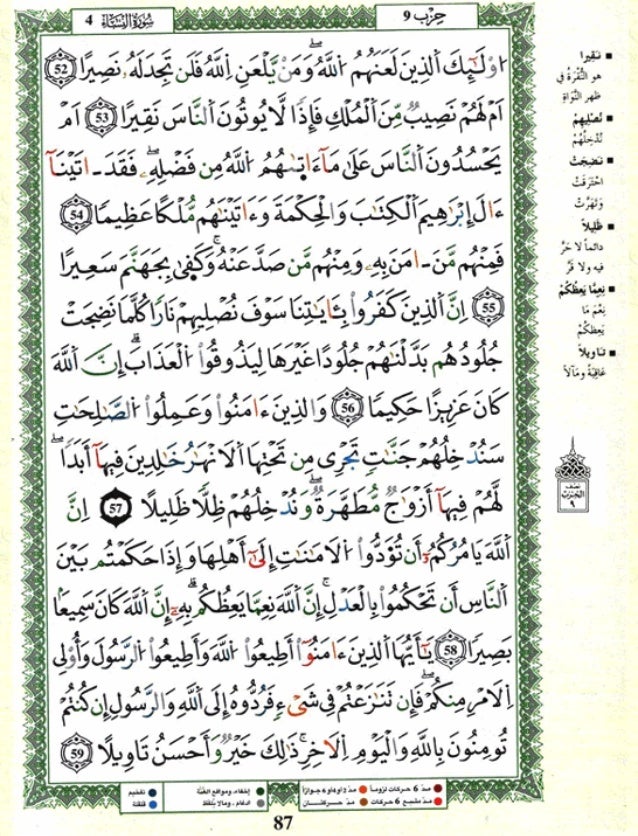 سُورَةُ النِّسَاءِ 4
حِزْب 9
اُ۟وْلَٰٓئِكَ اَ۬لذِينَ لَعَنَهُمُ اُ۬للَّهُۖ وَمَنْ يَّلْعَنِ اِ۬للَّهُ فَلَن تَجِدَ لَهُۥ نَصِيراًۖ 52
اَمْ لَهُمْ نَصِيبٞ مِّنَ اَ۬لْمُلْكِ فَإِذاٗ لَّا يُوتُونَ اَ۬لنَّاسَ نَقِيراً 53 اَمْ
يَحْسُدُونَ اَ۬لنَّاسَ عَلَىٰ مَآ ءَاتَىٰهُمُ اُ۬للَّهُ مِن فَضْلِهِۦۖ فَقَدَ اٰتَيْنَآ
ءَالَ إِبْرَٰهِيمَ اَ۬لْكِتَٰبَ وَالْحِكْمَةَ وَءَاتَيْنَٰهُم مُّلْكاً عَظِيماٗ 54
فَمِنْهُم مَّنَ اٰمَنَ بِهِۦ وَمِنْهُم مَّن صَدَّ عَنْهُۖ وَكَف۪ىٰ بِجَهَنَّمَ سَعِيراً
55 اِنَّ اَ۬لذِينَ كَفَرُواْ بِـَٔايَٰتِنَا سَوْفَ نُصْلِيهِمْ نَاراٗ كُلَّمَا نَضِجَتْ
جُلُودُهُم بَدَّلْنَٰهُمْ جُلُوداً غَيْرَهَا لِيَذُوقُواْ اُ۬لْعَذَابَۖ إِنَّ اَ۬للَّهَ
كَانَ عَزِيزاً حَكِيماٗ 56 وَالذِينَ ءَامَنُواْ وَعَمِلُواْ اُ۬لصَّٰلِحَٰتِ
سَنُدْخِلُهُمْ جَنَّٰتٖ تَجْرِے مِن تَحْتِهَا اَ۬لَانْهَٰرُ خَٰلِدِينَ فِيهَآ أَبَداٗۖ
لَّهُمْ فِيهَآ أَزْوَٰجٞ مُّطَهَّرَةٞۖ وَنُدْخِلُهُمْ ظِلّاٗ ظَلِيلاًۖ 57 اِنَّ
اَ۬للَّهَ يَامُرُكُمُۥٓ أَن تُؤَدُّواْ اُ۬لَامَٰنَٰتِ إِلَىٰٓ أَهْلِهَا وَإِذَا حَكَمْتُم بَيْنَ
اَ۬لنَّاسِ أَن تَحْكُمُواْ بِالْعَدْلِۖ إِنَّ اَ۬للَّهَ نِعِمَّا يَعِظُكُم بِهِۦٓۖ إِنَّ اَ۬للَّهَ كَانَ سَمِيعاَۢ
بَصِيراٗۖ 58 يَٰٓأَيُّهَا اَ۬لذِينَ ءَامَنُوٓاْ أَطِيعُواْ اُ۬للَّهَ وَأَطِيعُواْ اُ۬لرَّسُولَ وَأُوْلِے
اِ۬لَامْرِ مِنكُمْۖ فَإِن تَنَٰزَعْتُمْ فِے شَےْءٖ فَرُدُّوهُ إِلَى اَ۬للَّهِ وَالرَّسُولِ إِن كُنتُمْ
تُومِنُونَ بِاللَّهِ وَالْيَوْمِ اِ۬لَاخِرِۖ ذَٰلِكَ خَيْرٞ وَأَحْسَنُ تَاوِيلاًۖ 59
نَقِيراً
هو النُّقْرَةُ في
ظهر النَّوَاةِ
نُصْلِيهِمْ
نُدْخِلُهُمْ
نَضِجَتْ
احْتَرَقَتْ
وَتَهَرَّتْ
ظَلِيلاً
دائماً لا حَرَّ
فيه ولا قَرَّ
نِعِمَّا يَعِظُكُمْ
نِعْمَ مَا
يَعِظُكُمْ
تَاوِيلاً
عَاقِبَةً وَمَآلاً
نصف
الحزب
٩
مدّ 6 حركات لزوماً
مدّ 2 أو 4 أو 6 جوازاً
إخفاء، ومواقع الغُنَّة
تفخيم
مدّ مشبع 6 حركات
مدّ حركتــان
ادغام، ومالا يُلفَظ
قلقلة
87